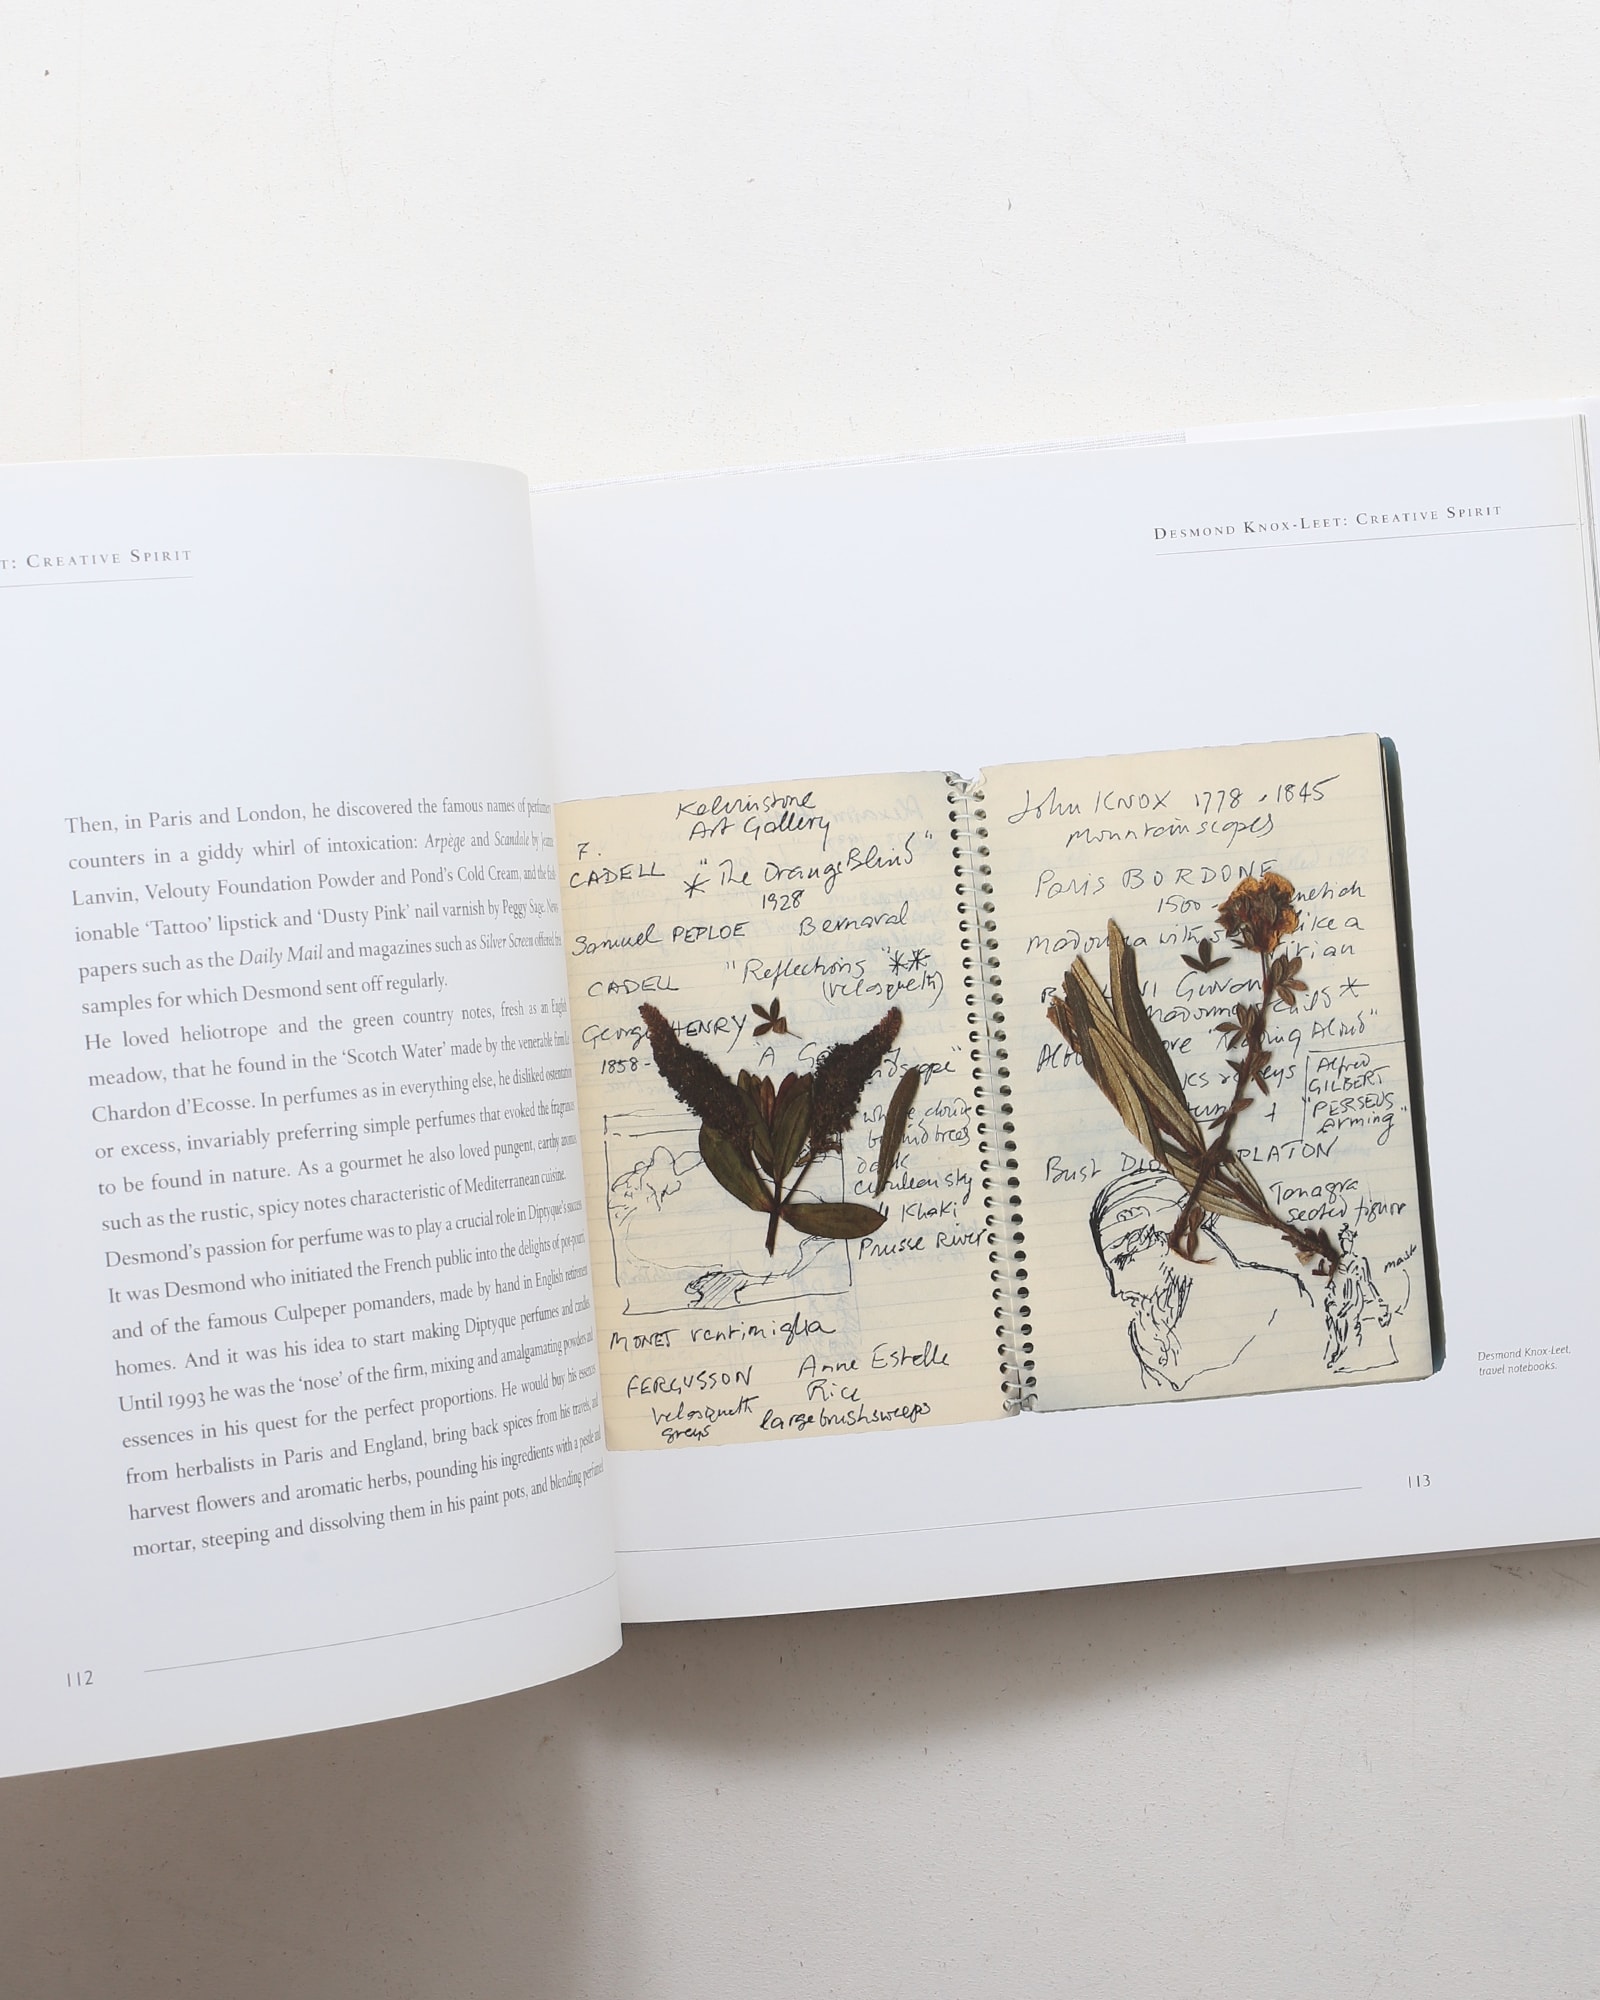 T: CREATIVE SPIRIT
Then, in Paris and London, he discovered the famous names of perfumes
counters in a giddy whirl of intoxication: Arpège and Scandale by Jeanne
Lanvin, Velouty Foundation Powder and Pond's Cold Cream, and the fash-
ionable 'Tattoo' lipstick and 'Dusty Pink' nail varnish by Peggy Sage. News
papers such as the Daily Mail and magazines such as Silver Screen offered free
samples for which Desmond sent off regularly.
He loved heliotrope and the green country notes, fresh as an English
meadow, that he found in the 'Scotch Water' made by the venerable firm Le
Chardon d'Ecosse. In perfumes as in everything else, he disliked ostentation
or excess, invariably preferring simple perfumes that evoked the fragrances
to be found in nature. As a gourmet he also loved pungent, earthy aromas
such as the rustic, spicy notes characteristic of Mediterranean cuisine.
Desmond's passion for perfume was to play a crucial role in Diptyque's success
It was Desmond who initiated the French public into the delights of pot-pourri
and of the famous Culpeper pomanders, made by hand in English retirement
homes. And it was his idea to start making Diptyque perfumes and candles
Until 1993 he was the 'nose' of the firm, mixing and amalgamating powders and
essences in his quest for the perfect proportions. He would buy his essences
from herbalists in Paris and England, bring back spices from his travels, and
harvest flowers and aromatic herbs, pounding his ingredients with a pestle and
mortar, steeping and dissolving them in his paint pots, and blending perfumed
112
DESMOND KNOX-LEET: CREATIVE SPIRIT
Kelvinstone
Art Gallery
7.
CADELL * "The Orange Blind"
1928
Samuel PEPLOE Bernaval
CADELL "Reflections" **
(velasqueth)
George HENRY
1858-
"A
dark
sky
Khaki
Prusse River
MONET ventimiglia
FERGUSSON Anne Estelle
Rice
velasqueth
greys
large brush sweeps
John KNOX 1778 - 1845
mountainscapes
Paris BORDONE
1500 -
madonna with
like a
Titian
madonna child *
Aloud"
Alfred
GILBERT
"PERSEUS
Arming"
Bust PLATON
Tanagra
seated figure
mask
Desmond Knox-Leet,
travel notebooks.
113